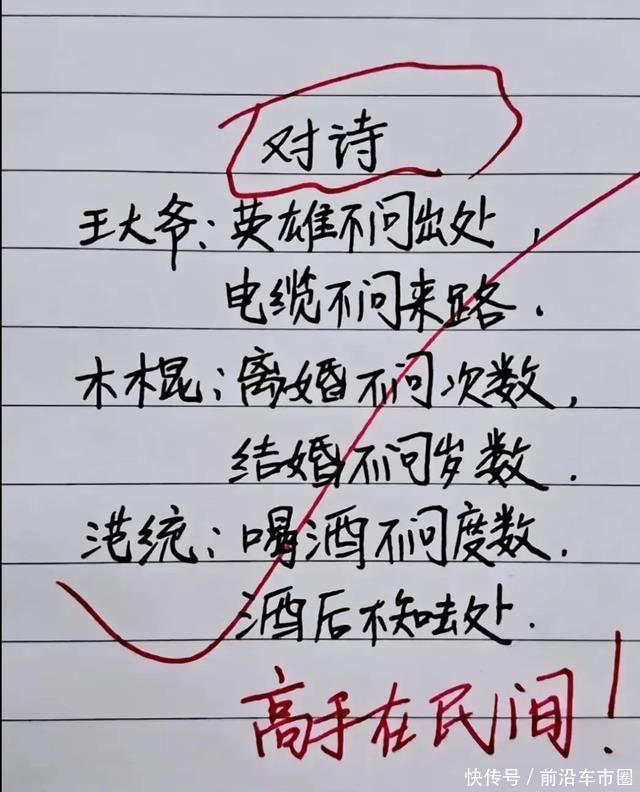 对诗
王大爷：英雄不问出处，
电缆不问来路．
木棍：离婚不问次数，
结婚不问岁数．
港统：喝酒不问度数．
酒后不知去处．
高手在民间！
快传号／前沿车市圈